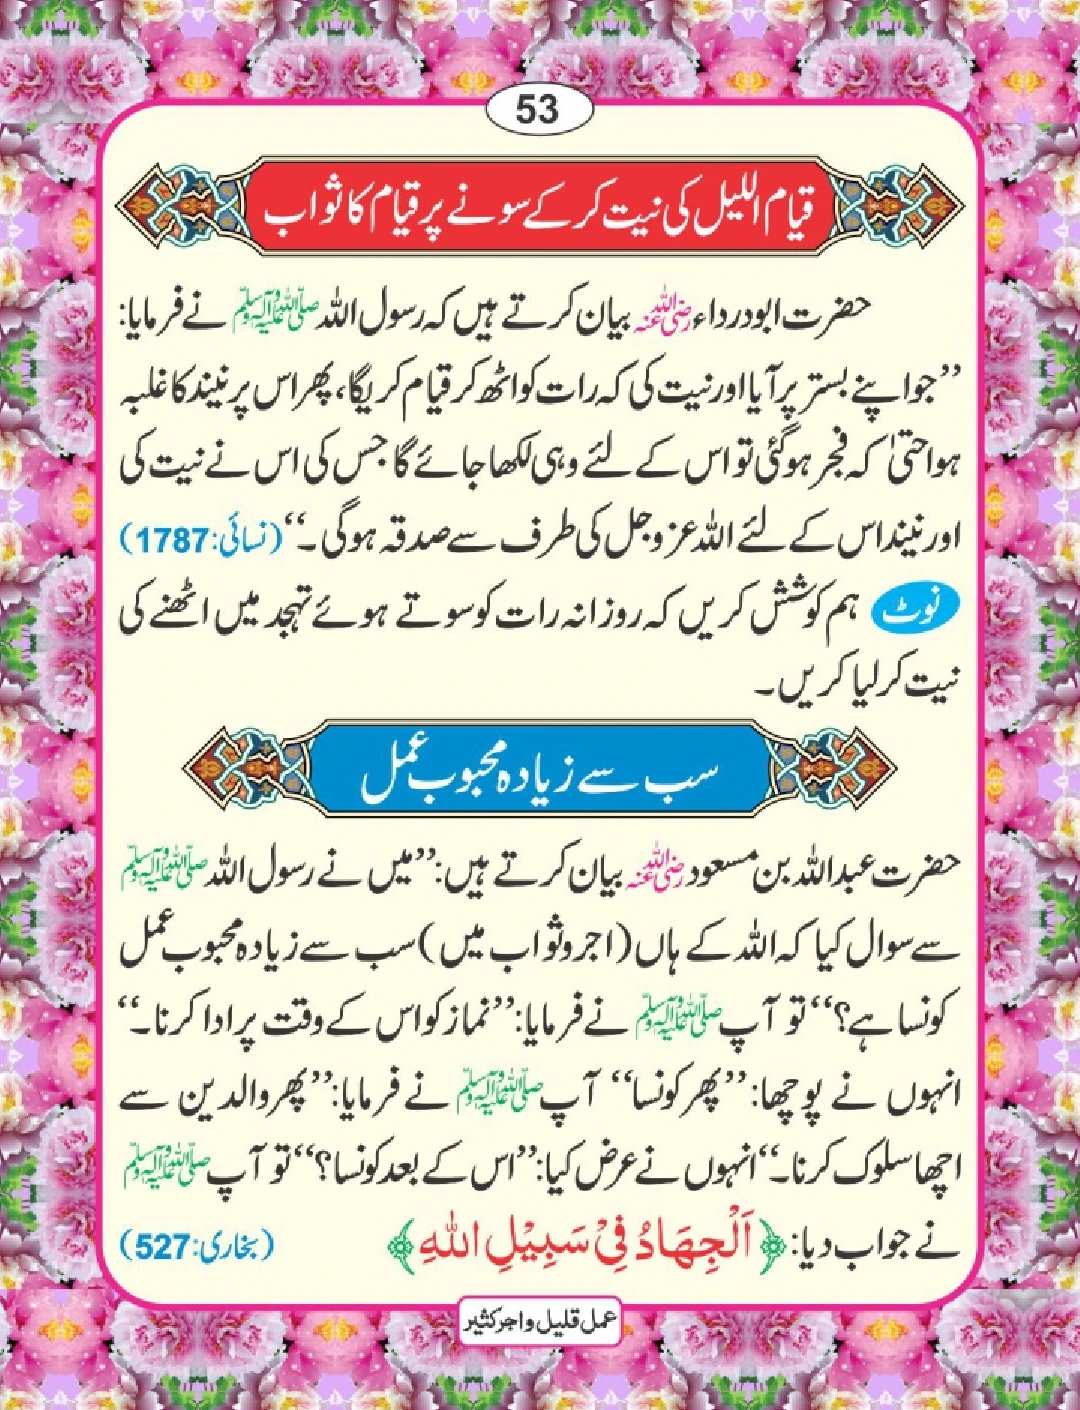 53
قیام اللیل کی نیت کر کے سونے پر قیام کا ثواب
حضرت ابودرداء رضی اللہ عنہ بیان کرتے ہیں کہ رسول اللہ صلی اللہ علیہ وآلہ وسلم نے فرمایا:
”جو اپنے بستر پر آیا اور نیت کی کہ رات کو اٹھ کر قیام کریگا، پھر اس پر نیند کا غلبہ
ہوا حتیٰ کہ فجر ہوگئی تو اس کے لئے وہی لکھا جائے گا جس کی اس نے نیت کی
اور نیند اس کے لئے اللہ عزوجل کی طرف سے صدقہ ہوگی۔“ (نسائی: 1787)
نوٹ ہم کوشش کریں کہ روزانہ رات کو سوتے ہوئے تہجد میں اٹھنے کی
نیت کر لیا کریں۔
سب سے زیادہ محبوب عمل
حضرت عبداللہ بن مسعود رضی اللہ عنہ بیان کرتے ہیں: ”میں نے رسول اللہ صلی اللہ علیہ وآلہ وسلم
سے سوال کیا کہ اللہ کے ہاں (اجر و ثواب میں) سب سے زیادہ محبوب عمل
کونسا ہے؟“ تو آپ صلی اللہ علیہ وآلہ وسلم نے فرمایا: ”نماز کو اس کے وقت پر ادا کرنا۔“
انہوں نے پوچھا: ”پھر کونسا“ آپ صلی اللہ علیہ وآلہ وسلم نے فرمایا: ”پھر والدین سے
اچھا سلوک کرنا۔“ انہوں نے عرض کیا: ”اس کے بعد کونسا؟“ تو آپ صلی اللہ علیہ وآلہ وسلم
نے جواب دیا: ﴿اَلْجِهَادُ فِیْ سَبِیْلِ اللهِ﴾ (بخاری: 527)
عمل قلیل و اجر کثیر